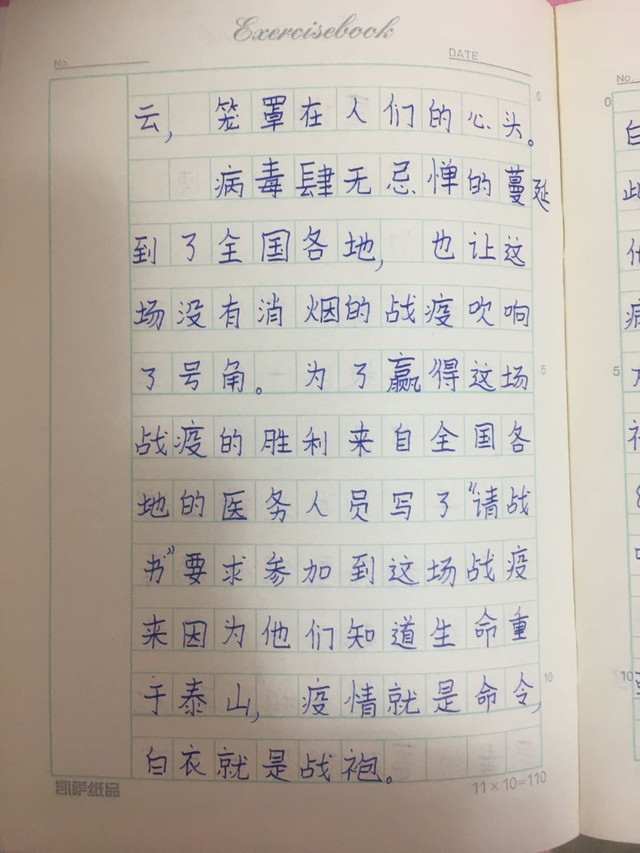 Exercisebook
No.
DATE
云，笼罩在人们的心头。
病毒肆无忌惮的蔓延
到了全国各地，也让这
场没有消烟的战疫吹响
了号角。为了赢得这场
战疫的胜利来自全国各
地的医务人员写了“请战
书”要求参加到这场战疫
来因为他们知道生命重
于泰山，疫情就是命令，
白衣就是战袍。
凯神纸品
11×10=110
0
5
10
No.
0
5
10